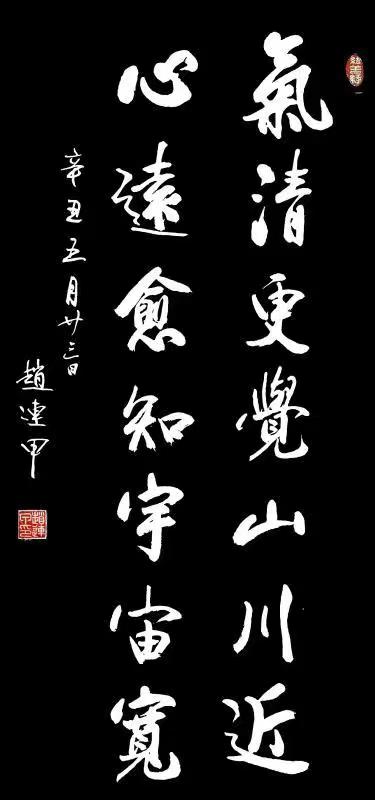 氣清更覺山川近
心遠愈知宇宙寬
辛丑五月廿三日
趙連甲